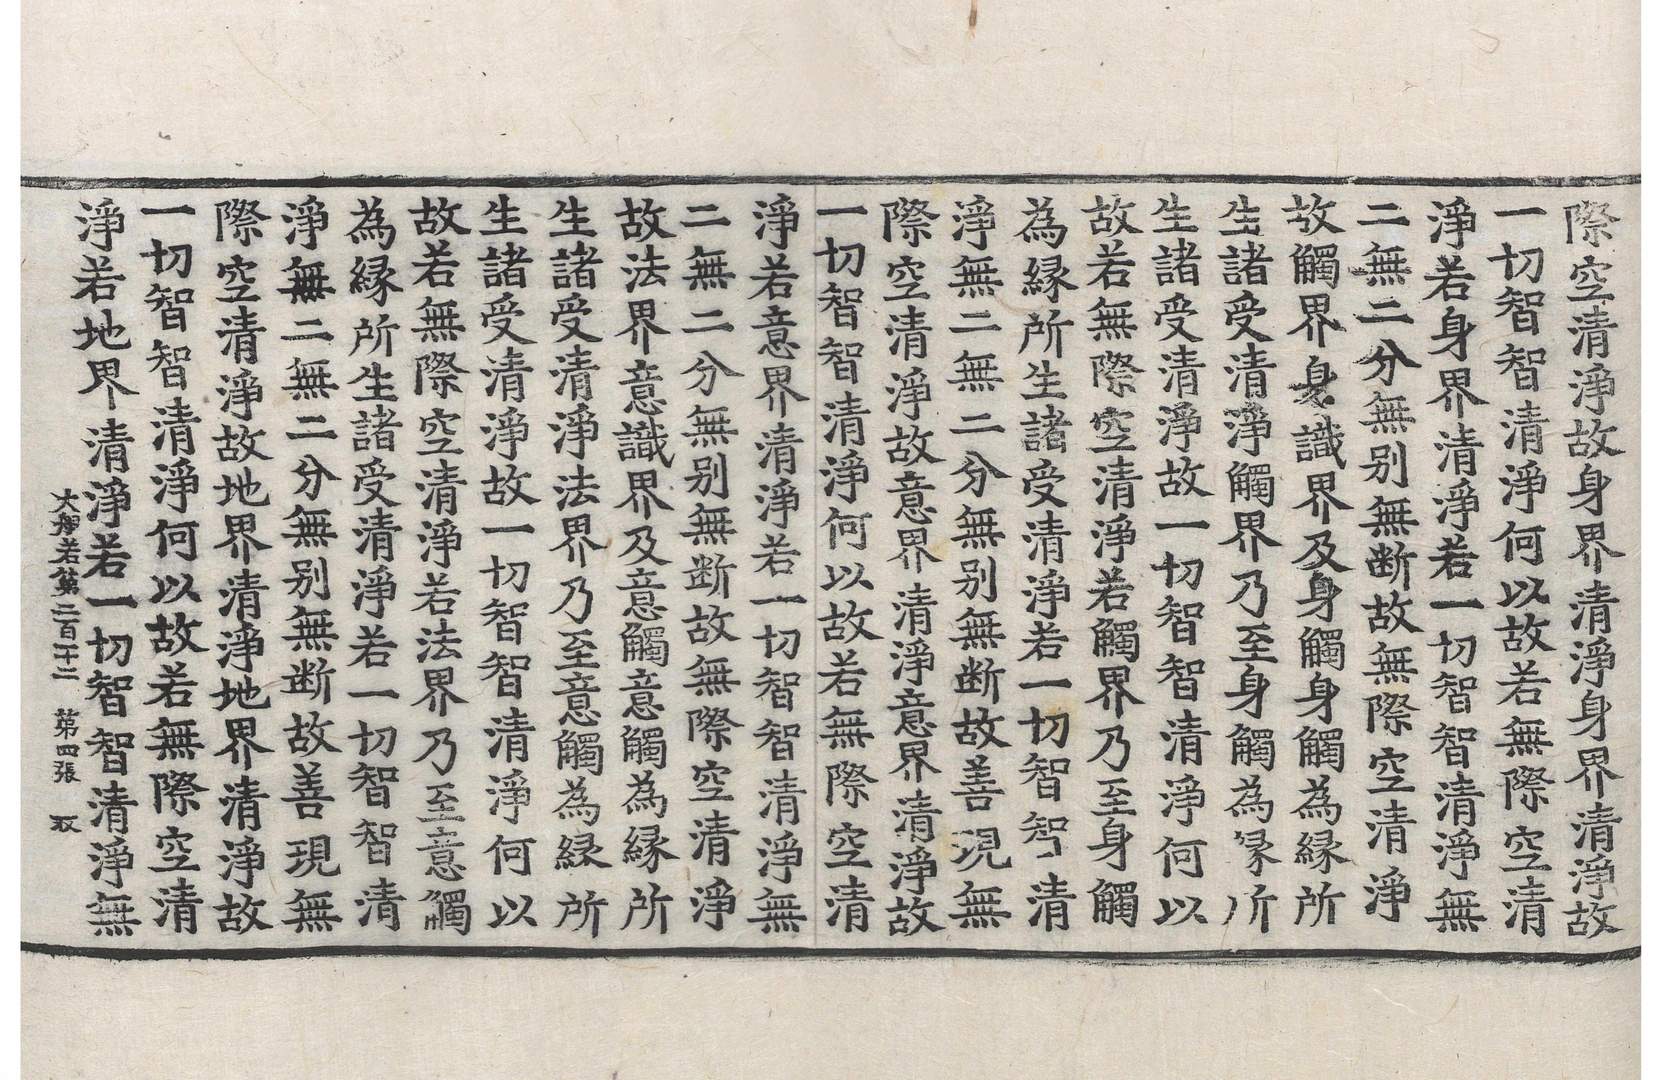 際空清淨故身界清淨身界清淨故
一切智智清淨何以故若無際空清
淨若身界清淨若一切智智清淨無
二無二分無別無断故無際空清淨
故觸界身識界及身觸身觸為縁所
生諸受清淨觸界乃至身觸為縁所
生諸受清淨故一切智智清淨何以
故若無際空清淨若觸界乃至身觸
為縁所生諸受清淨若一切智智清
淨無二無二分無別無断故善現無
際空清淨故意界清淨意界清淨故
一切智智清淨何以故若無際空清
淨若意界清淨若一切智智清淨無
二無二分無別無断故無際空清淨
故法界意識界及意觸意觸為縁所
生諸受清淨法界乃至意觸為縁所
生諸受清淨故一切智智清淨何以
故若無際空清淨若法界乃至意觸
為縁所生諸受清淨若一切智智清
淨無二無二分無別無断故善現無
際空清淨故地界清淨地界清淨故
一切智智清淨何以故若無際空清
淨若地界清淨若一切智智清淨無
大般若第二百一十三 第四張 収